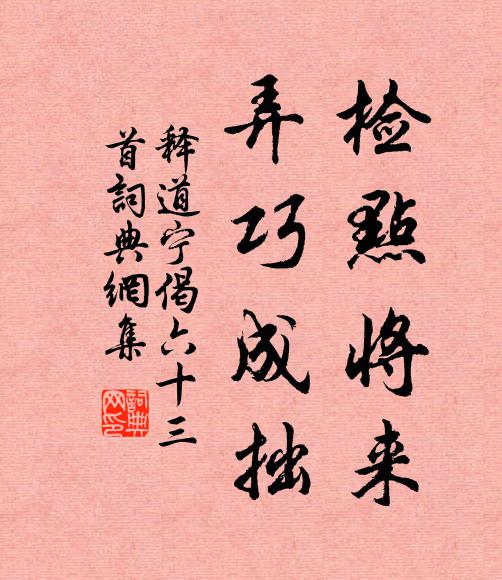 检點将来
弄巧成拙
释道宁偈六十三
首詞典網集
詞典网印